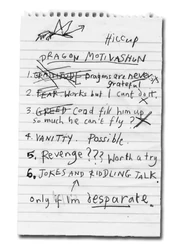 Hiccup
DRAGON MOTIVASHUN
1. GRATITUDE Dragons are never
grateful.
2. FEAR Works but I can't do it.
3. GREED Coud fill him up
so much he can't fly?
4. VANITY. Possible.
5. Revenge??? Worth a try
6. JOKES AND RIDDLING TALK
only if Im desparate.